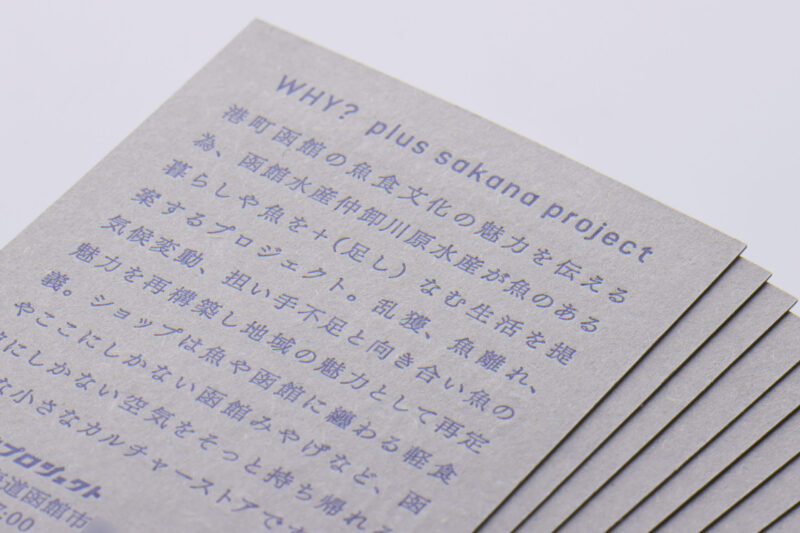 WHY? plus sakana project
港町函館の魚食文化の魅力を伝える
為、函館水産仲卸川原水産が魚のある
暮らしや魚を+(足し)なむ生活を提
案するプロジェクト。乱獲、魚離れ、
気候変動、担い手不足と向き合い魚の
魅力を再構築し地域の魅力として再定
義。ショップは魚や函館に纏わる軽食
やここにしかない函館みやげなど、函
にしかない空気をそっと持ち帰れる
な小さなカルチャーストアです
プロジェクト
道函館市
:00